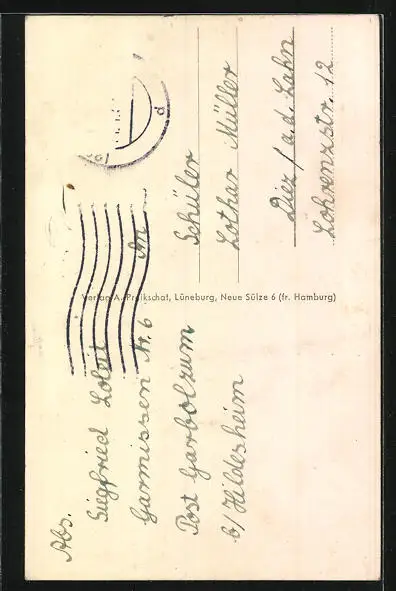 Abs.
Siegfried
Garmissen Nr. 6
Post Garbolzum
b/Hildesheim
Verlag A. Projkschat, Lüneburg, Neue Sülze 6 (fr. Hamburg)
An
Schüler
Lothar Müller
Diez / a.d. Lahn
Lohrenzstr. 12
d